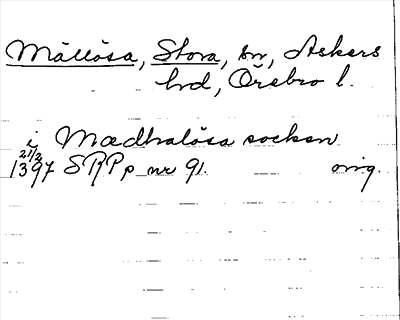 Mällösa, Stora, sn, Askers
hd, Örebro l.
i Mædhalösa socken
21/2
1397 SRPp nr 91. orig.